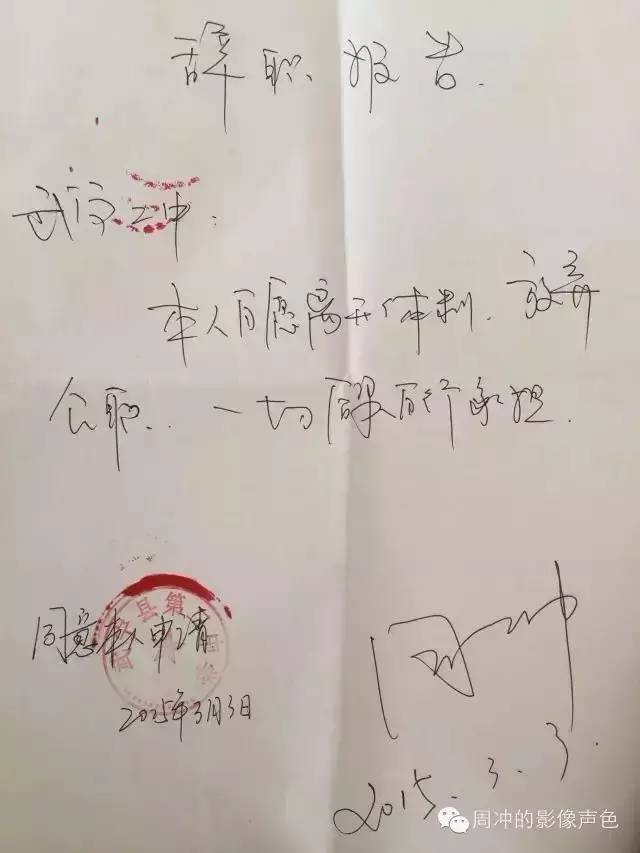 辞职报告.
武宁二中:
本人自愿离开体制、放弃
公职.一切后果自行承担.
同意本人申请
2015年3月3日
县第
周冲
2015.3.3.
周冲的影像声色